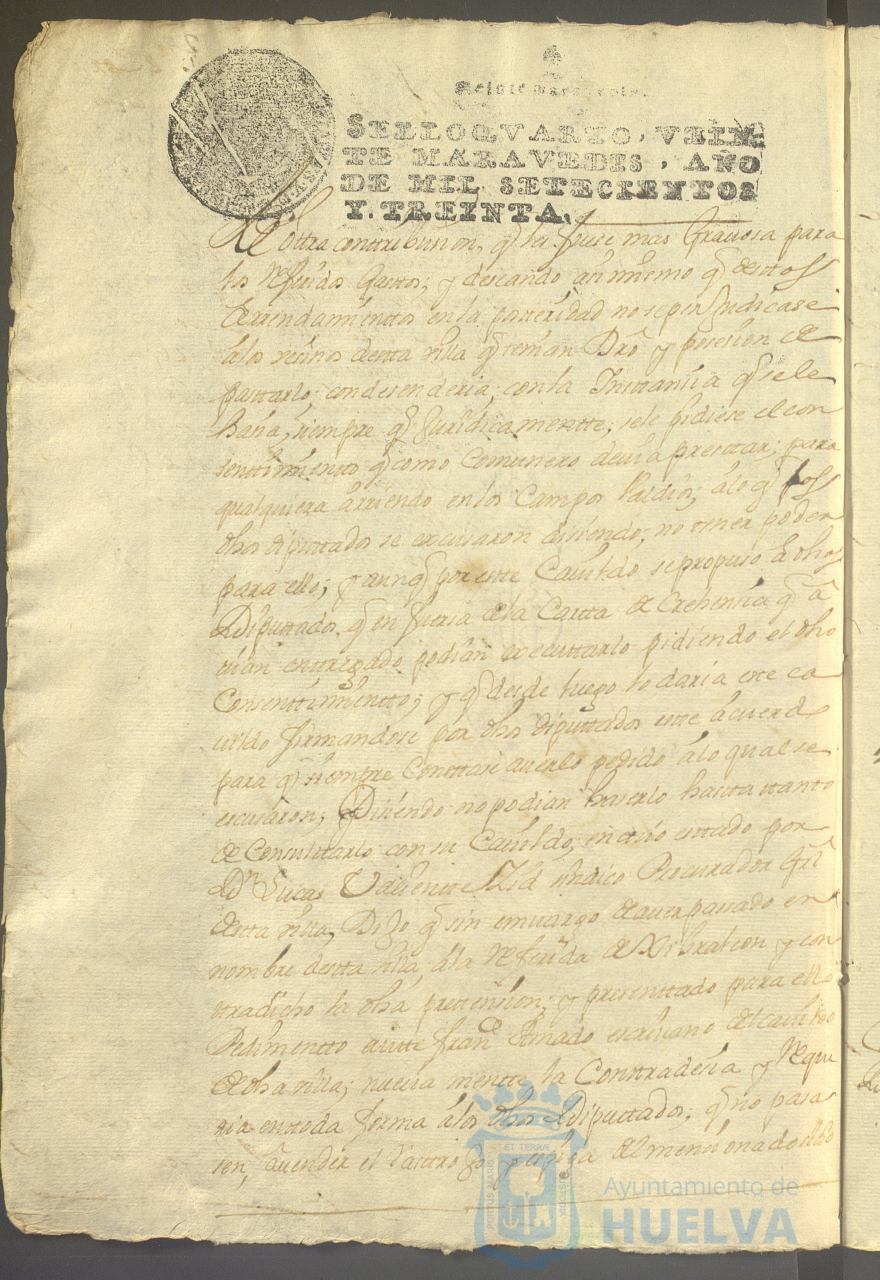 Veinte maravedis.
SELLO QVARTO, VEIN-
TE MARAVEDIS, AÑO
DE MIL SETECIENTOS
Y TREINTA.
otra contribucion, q̃ les fuese mas Gravosa para
los referidos Gastos; y deseando asi mismo q̃ destos
Arrendamientos en la posteridad no se perjudicase
alos vecinos desta villa q̃ tenian Dro y posesion de
pastarlo, condesenderia, con la Instancia q̃ se le
hacia, siempre q̃ Juridicamentte, se le pidiese el con
senttimiento q̃ como Comunero devia presttar; para
qualquiera arriendo en los Campos Valdios, alo q̃ los
dhos diputtados se excusaron disiendo, no tener poder
para ello; y aunq̃ por este Cavildo se propuso a dhos
Diputtados, q̃ en fuersa de la Cartta de Crehencia q̃ a
vian entregado podian executtarlo pidiendo el dho
Consenttimientto; y q̃ desde luego lo daria este ca
vildo firmandose por dhos diputtados este acuerdo
para q̃ siempre Constase averlo pedido alo qual se
escusaron, Disiendo no podian haserlo hasta ttanto
de Consultarlo con su Cavildo, en cuio esttado por
Dn Lucas Valiente sindico Procurador Grl
desta villa, Dijo q̃ sin emvargo de aver pasado en
nombre desta villa, ala referida de Gibraleon y con
tradicho la dha prettension; y presenttado para ello
Pedimentto antte Franco Amado escrivano del cavildo
de dha villa; nueva mente la Conttradecia y reque
ria en toda forma alos dhos Diputtados; q̃ no pasa
sen, a vender el Pasttro y espiga del mencionado
ET TERRÆ
Ayuntamiento de
HUELVA